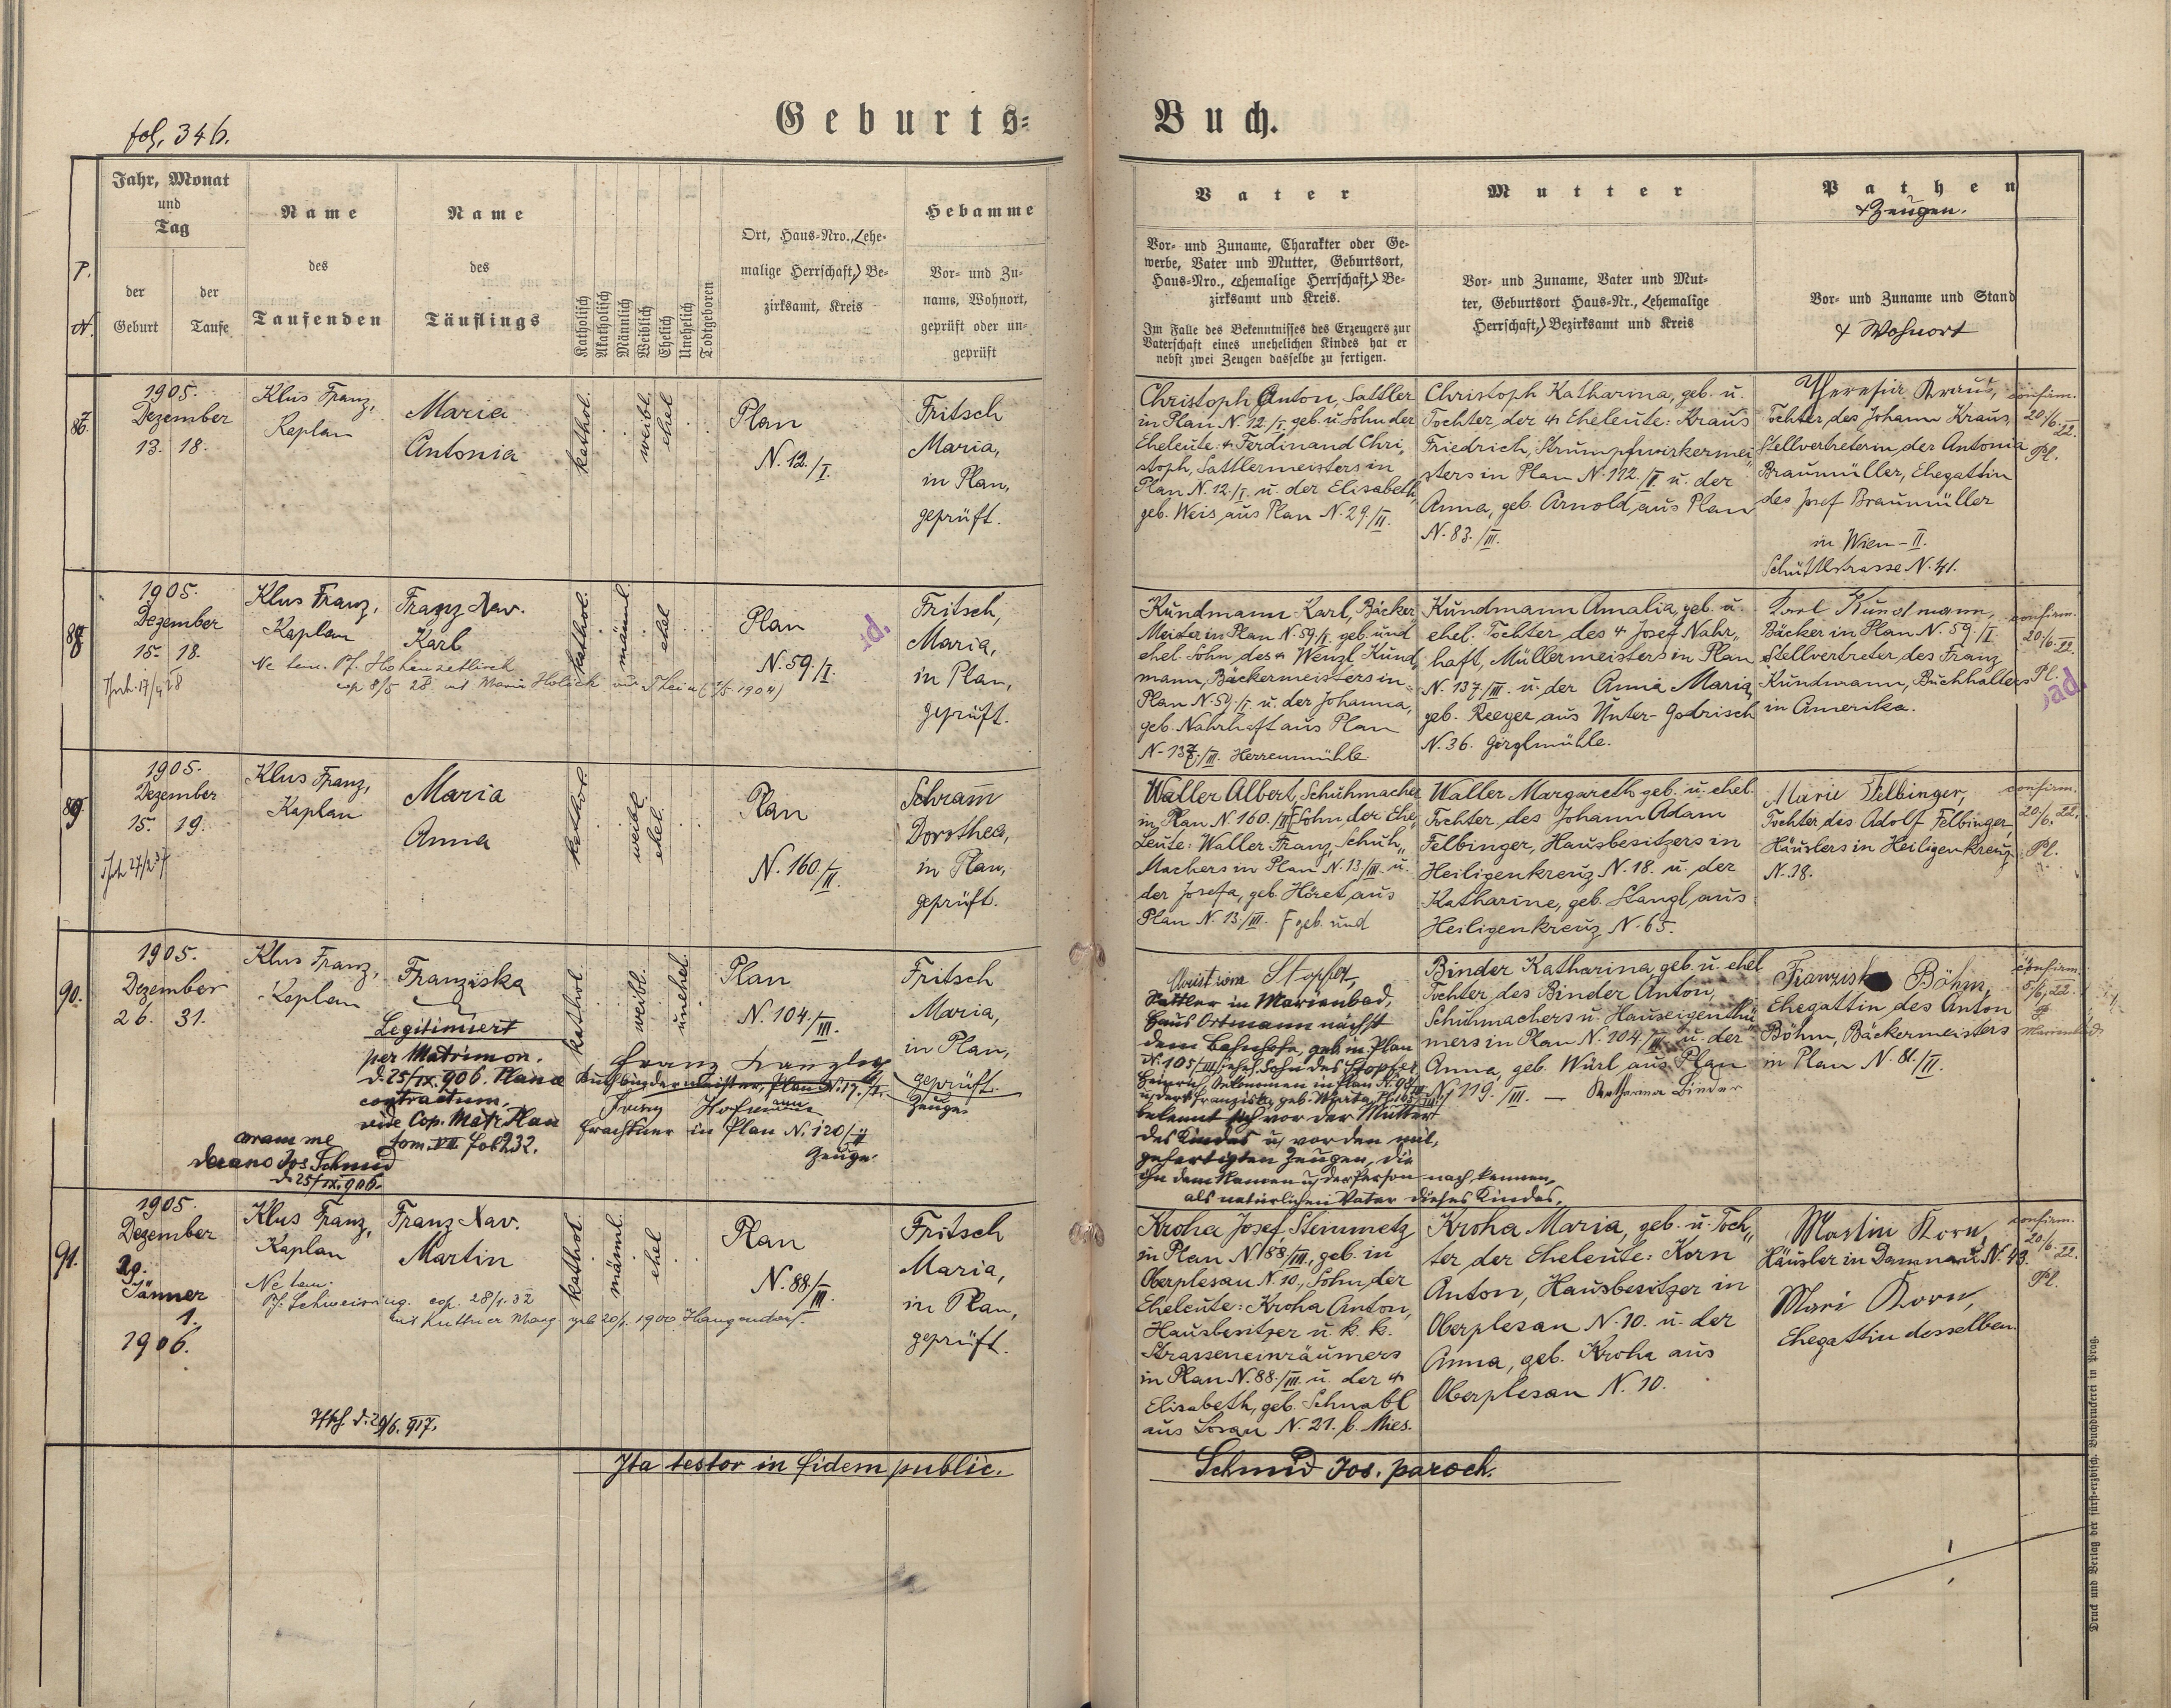 fol. 346.
Geburts-
Buch.
P.
N.
Jahr, Monat
und
Tag
der
Geburt
der
Taufe
Name
des
Taufenden
Name
des
Täuflings
Katholisch
Akatholisch
Männlich
Weiblich
Ehelich
Unehelich
Todtgeboren
Ort, Haus-Nro., (ehe-
malige Herrschaft,) Be-
zirksamt, Kreis
Hebamme
Vor- und Zu-
nams, Wohnort,
geprüft oder un-
geprüft
Vater
Vor- und Zuname, Charakter oder Ge-
werbe, Vater und Mutter, Geburtsort,
Haus-Nro., (ehemalige Herrschaft,) Be-
zirksamt und Kreis.
Im Falle des Bekenntnisses des Erzeugers zur
Vaterschaft eines unehelichen Kindes hat er
nebst zwei Zeugen dasselbe zu fertigen.
Mutter
Vor- und Zuname, Vater und Mut-
ter, Geburtsort Haus-Nr., (ehemalige
Herrschaft,) Bezirksamt und Kreis
Pathen
& Zeugen.
Vor- und Zuname und Stand
& Wohnort
1905.
Dezember
13. 18.
Klus Franz,
Kaplan
Maria
Antonia
kathol.
weibl.
ehel
Plan
N. 12./I.
Fritsch
Maria,
in Plan,
geprüft.
Christoph Anton, Sattler
in Plan N. 12./I. geb. u. Sohn der
Eheleute: Ferdinand Chri-
stoph, Sattlermeisters in
Plan N. 12./I. u. der Elisabeth,
geb. Weis aus Plan N. 29./II.
Christoph Katharina, geb. u.
Tochter, der Eheleute: Kraus
Friedrich, Strumpfwirkermei-
sters in Plan N. 112./II u. der
Anna, geb. Arnold, aus Plan
N. 83./III.
Theresia Kraus,
Tochter des Johann Kraus,
Stellvertreterin der Antonia
Braumüller, Ehegattin
des Josef Braumüller
in Wien - II.
Schüttelstrasse N. 41.
confirm.
20./6. 22.
Pl.
1905.
Dezember
15. 18.
Klus Franz,
Kaplan
Franz Xav.
Karl
kathol.
männl.
ehel
Plan
N. 59./I.
Fritsch,
Maria,
in Plan,
geprüft.
Kundmann Karl, Bäcker
Meister in Plan N. 59./I. geb. und
ehel. Sohn, des Wenzl Kund-
mann, Bäckermeisters in
Plan N. 59./I. u. der Johanna,
geb. Nahrhaft aus Plan
N. 137./III. Herrenmühle.
Kundmann Amalia, geb. u.
ehel. Tochter, des Josef Nahr-
haft, Müllermeisters in Plan
N. 137./III. u. der Anna Maria,
geb. Reeger aus Unter-Godrisch
N. 36. Girglmühle.
Karl Kundmann,
Bäcker in Plan N. 59./I.
Stellvertreter des Franz
Kundmann, Buchhalters
in Amerika.
confirm.
20./6. 22.
Pl.
89
1905.
Dezember
15. 19.
Klus Franz,
Kaplan
Maria
Anna
kathol.
weibl.
ehel.
Plan
N. 160./II.
Schram̅
Dorothea,
in Plan,
geprüft.
Waller Albert, Schuhmacher
in Plan N. 160./II F Sohn, der Ehe-
Leute: Waller Franz, Schuh-
Machers in Plan N. 13./III. u.
der Josefa, geb. Höret, aus
Plan N. 13./III. F geb. und
Waller Margareth geb. u. ehel.
Tochter des Johann Adam
Felbinger, Hausbesitzers in
Heiligenkreuz N. 18. u. der
Katharine, geb. Stangl, aus
Heiligenkreuz N. 65.
Marie Felbinger,
Tochter des Adolf Felbinger,
Häuslers in Heiligenkreuz
N. 18.
confirm.
20./6. 22.
Pl.
90.
1905.
Dezember
26. 31.
Klus Franz,
Kaplan
Franziska
Legitimiert
per Matrimon.
d. 25/IX. 906. Planæ
contractum,
vide Cop. Matr. Plan
tom. VII fol 232.
coram me
decano Jos Schmid
d. 25/IX. 906.
kathol.
weibl.
unehel.
Plan
N. 104./III.
Franz
Buchbindermeister, Plan N. 17./I.
Zeuge.
Franz Hofmann
in Plan N. 120/II
Zeuge.
Fritsch
Maria,
in Plan,
geprüft.
Stopfer,
Sattler in Marienbad,
Haus Ortmann nächst
dem Bahnhofe, geb. in Plan
N. 105/III, ehel. Sohn des Stopfer
Heinrich, Oekonomen in Plan
bekennt sich vor der Mutter
des Kindes u. vor den mit-
gefertigten Zeugen, die
ihn dem Namen u. der Person nach kennen,
als natürlichen Vater dieses Kindes.
Binder Katharina, geb. u. ehel
Tochter des Binder Anton,
Schuhmachers u. Hauseigenthü-
mers in Plan N. 104./III. u. der
Anna, geb. Würl, aus Plan
N. 119./III. — Katharina Binder
Franziska Böhm,
Ehegattin des Anton
Böhm, Bäckermeisters
in Plan N. 81./II.
confirm.
5/6. 22.
Marienbad
91.
1905
Dezember
29.
Jänner
1.
1906.
Klus Franz,
Kaplan
Franz Xav.
Martin
kathol.
männl.
ehel
Plan
N. 88./III.
Fritsch
Maria,
in Plan,
geprüft.
Kroha Josef, Steinmetz
in Plan N. 88./III., geb. in
Oberplesau N. 10., Sohn, der
Eheleute: Kroha Anton,
Hausbesitzer u. k. k.
Strasseneinräumers
in Plan N. 88./III. u. der
Elisabeth, geb. Schnabl
aus Losau N. 21. b. Mies.
Kroha Maria, geb. u. Toch-
ter der Eheleute: Korn
Anton, Hausbesitzer in
Oberplesau N. 10. u. der
Anna, geb. Kroha aus
Oberplesau N. 10.
Martin Korn,
Häusler in Damnau N. 43.
Mari Korn,
Ehegattin desselben.
confirm.
20./6. 22.
Pl.
Ita testor in fidem public.
Schmid Jos. paroch.
Druck und Verlag der fürst-erzbisch. Buchdruckerei in Prag.